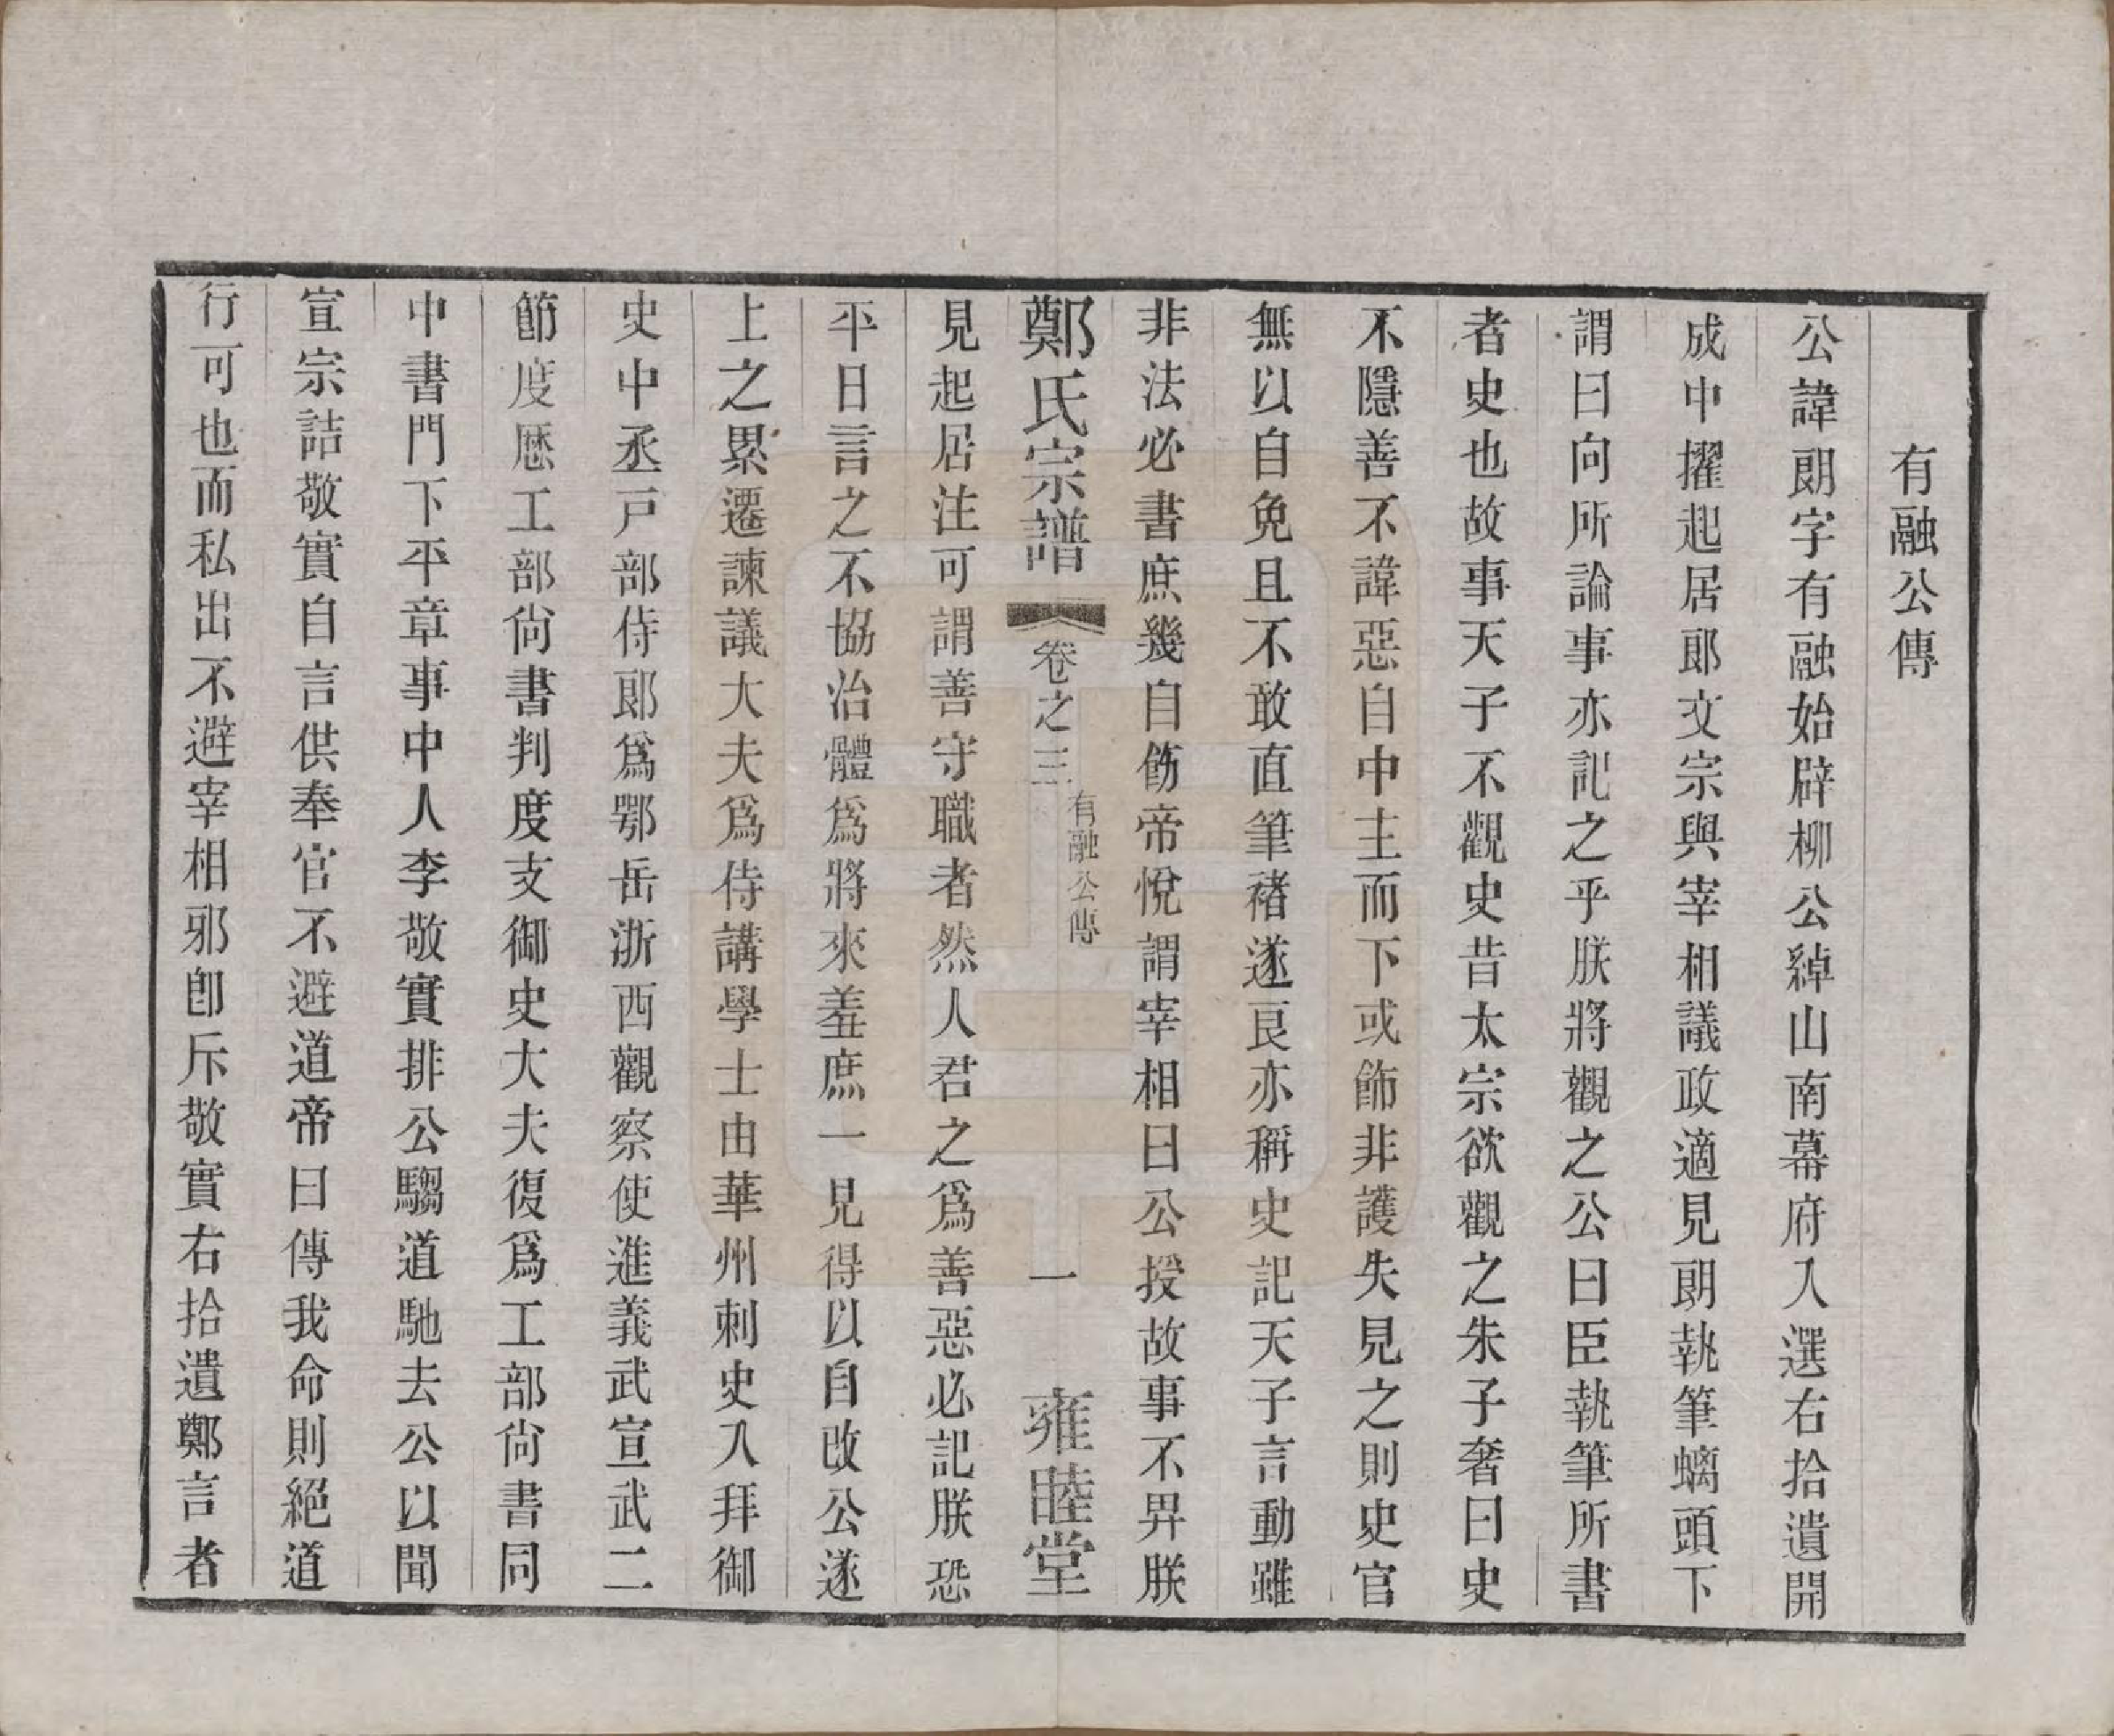 有融公傳
公諱朗字有融始辟柳公綽山南幕府入選右拾遺開
成中擢起居郞文宗與宰相議政適見朗執筆螭頭下
謂曰向所論事亦記之乎朕將觀之公曰臣執筆所書
者史也故事天子不觀史昔太宗欲觀之朱子奢曰史
不隱善不諱惡自中主而下或飾非護失見之則史官
無以自免且不敢直筆褚遂良亦稱史記天子言動雖
非法必書庶幾自飭帝悅謂宰相曰公授故事不畀朕
鄭氏宗譜 卷之三 有融公傳 一 雍睦堂
見起居注可謂善守職者然人君之爲善惡必記朕恐
平日言之不協治體爲將來羞庶一見得以自改公遂
上之累遷諫議大夫爲侍講學士由華州刺史入拜御
史中丞戸部侍郞爲鄂岳浙西觀察使進義武宣武二
節度厯工部尙書判度支御史大夫復爲工部尙書同
中書門下平章事中人李敬實排公騶道馳去公以聞
宣宗詰敬實自言供奉官不避道帝曰傳我命則絕道
行可也而私出不避宰相邪卽斥敬實右拾遺鄭言者